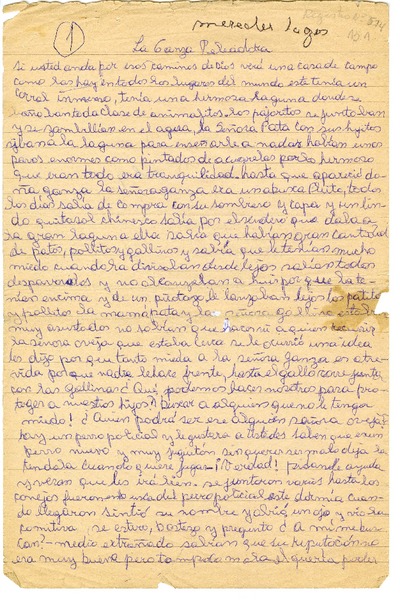 1
mercedes lagos
La Ganza Peleadora
Si usted anda por esos caminos de Dios verá una casa de campo
como las hay en todos los lugares del mundo este tenía un
corral inmenso, tenía una hermosa laguna donde se
toda clase de animalitos. los pajaritos se juntaban
y se zambullían en el agua, la Señora Pata con sus hijitos
iban a la laguna para enseñarle a nadar habían unos
pavos enormes como pintados de acuarelas por lo hermoso
que eran todo era tranquilidad. hasta que apareció do-
ña ganza. la señora ganza era una busca Pleito, todos
los días salía de compra con su sombrero y capa y un lin-
do quitasol chinesco salía por el sendero que daba a
la gran laguna ella sabía que habían gran cantidad
de patos, pollitos y gallinas y sabía que le tenían mucho
miedo cuando la divisaban desde lejos salían todos
y no alcanzaban a huir por que la te-
nían encima y de un picotazo le lanzaba lejos los patitos
y pollitos la mamá pata y la señora gallina estaban
muy asustados no sabían que hacer ni a quien recurrir
la señora oveja que estaba cerca se le ocurrió una idea
les dijo por que tanto miedo a la señora ganza es atre-
vida porque nadie le hace frente, hasta el gallo corre junto
con las gallinas ¿Qué podemos hacer nosotros para pro-
teger a nuestros hijos? ¡Buscar a alguien que no le tenga
miedo! ¿Quien podrá ser ese alguien señora oveja?
hay un perro policial y le gustará a ustedes saben que es un
perro nuevo y muy juguetón sin querer ser malo deja la
cuando quiere jugar ¡Verdad!
y verán que les irá bien se juntaron varios hasta los
conejos fueron en busca del perro policial este dormía cuan-
do llegaron sintió su nombre y abrió un ojo y vio la
comitiva se estiró, bostezó y preguntó ¿A mi me bus-
can? medio extrañado sabían que su reputación no
era muy buena pero